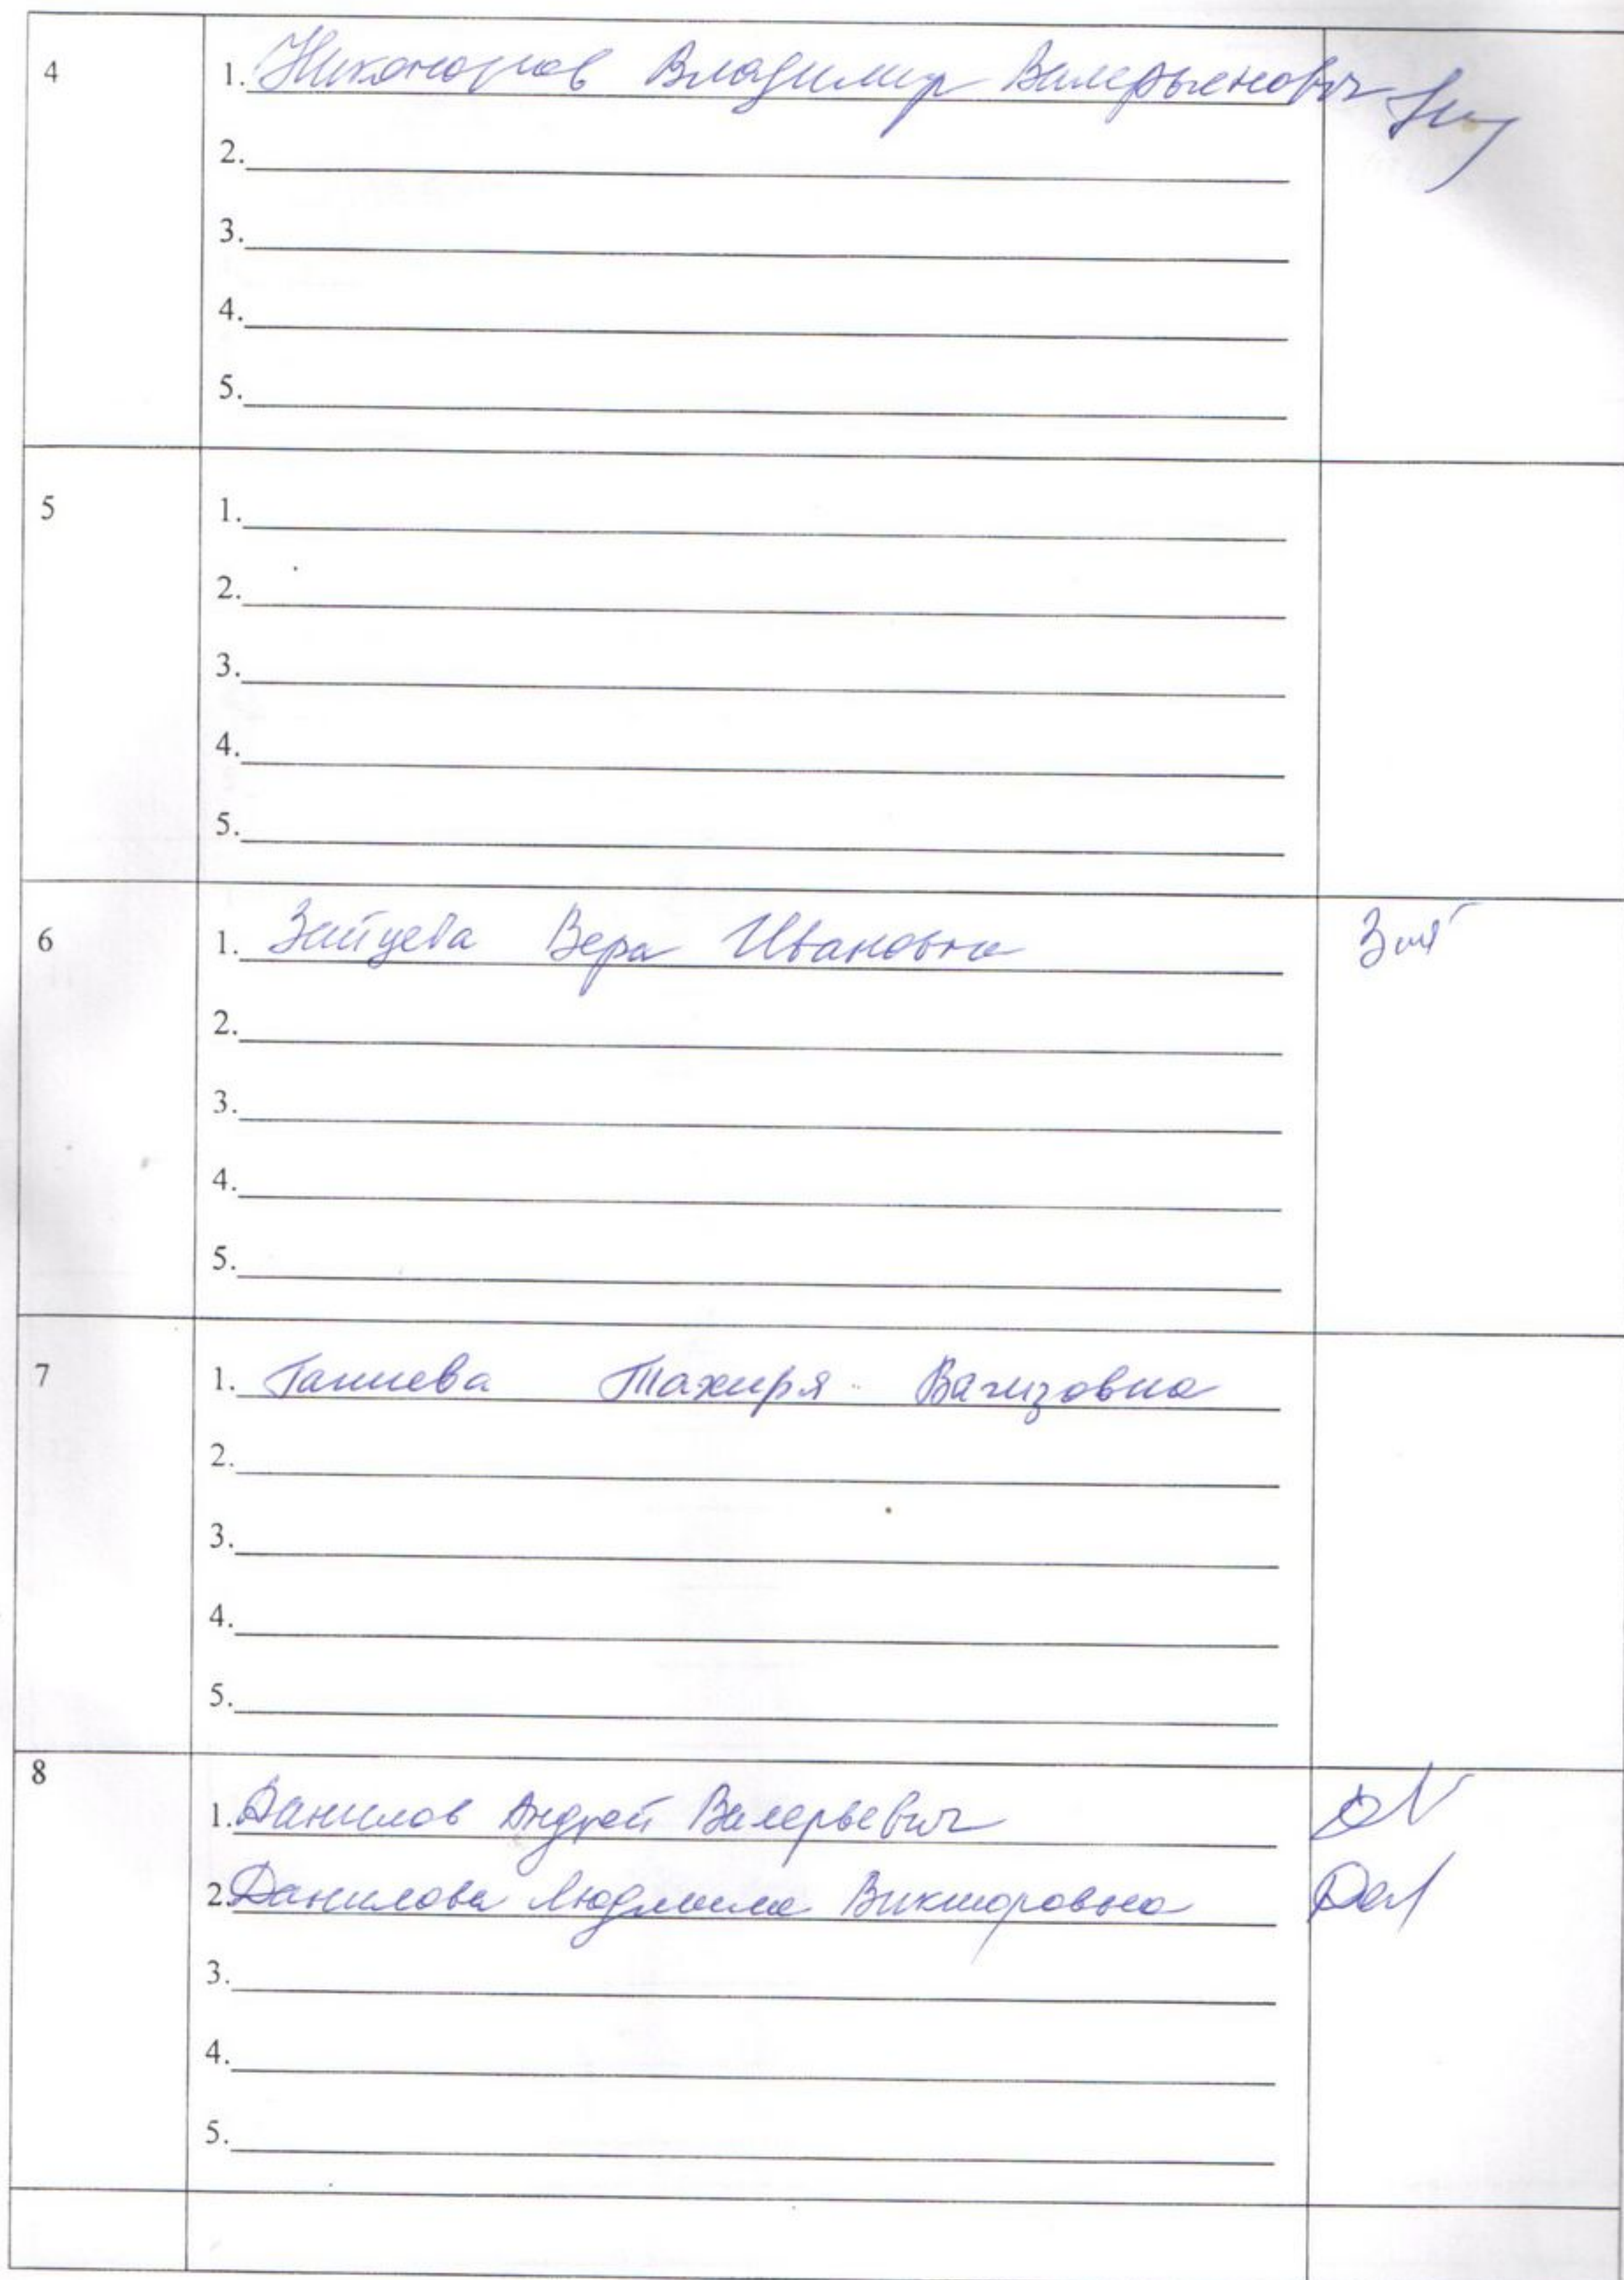 4
1. Никоноров Владимир Валерьенович
2.
3.
4.
5.
5
1.
2.
3.
4.
5.
6
1. Зайцева Вера Ивановна
2.
3.
4.
5.
7
1. Ганиева Тахиря Вагизовна
2.
3.
4.
5.
8
1. Данилов Андрей Валерьевич
2. Данилова Людмила Викторовна
3.
4.
5.